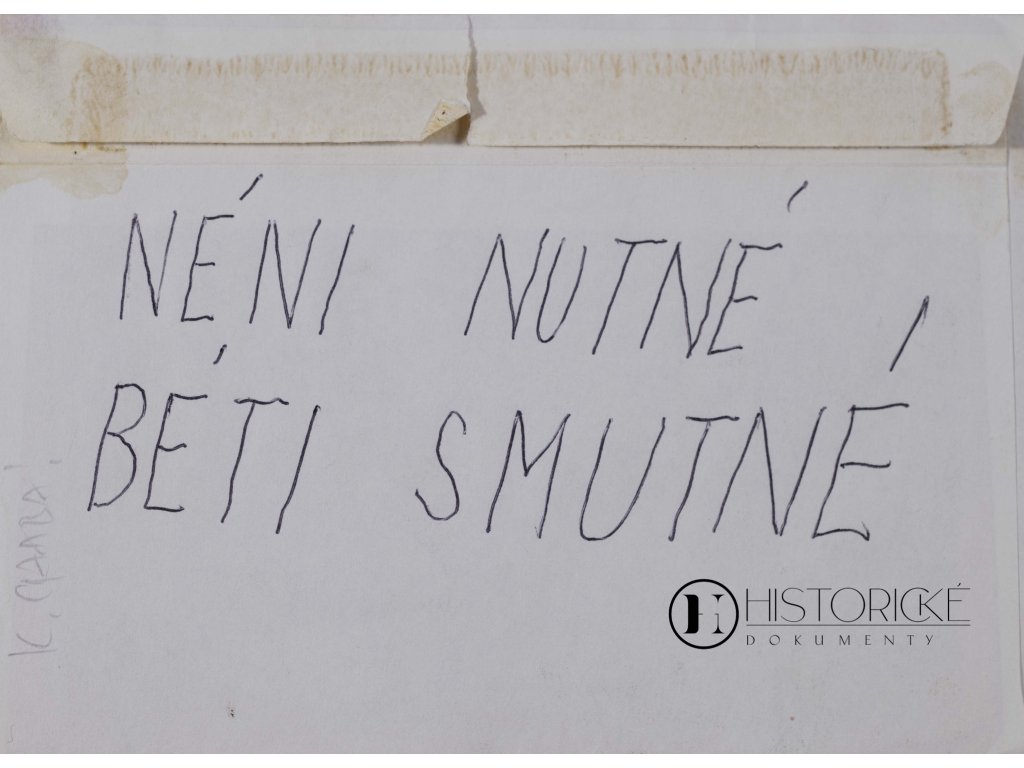 NÉNI NUTNÉ
BÉTI SMUTNÉ
HISTORICKÉ
DOKUMENTY